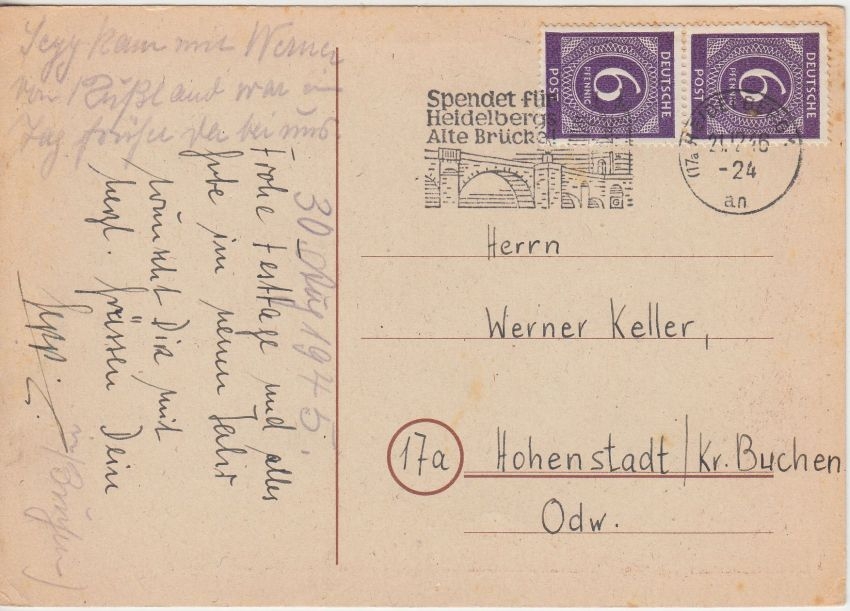 Sepp kam mit Werner
von Rußland war ein
Tag früher da bei uns.
30 Aug 1945.
Frohe Festtage und alles
Gute im neuen Jahr
wünscht Dir mit
herzl. Grüssen Dein
Sepp.
Spendet für
Heidelbergs
Alte Brücke!
DEUTSCHE
6
PFENNIG
POST
DEUTSCHE
6
PFENNIG
POST
(17a) HEIDELBERG
21.12.46
-24
an
Herrn
Werner Keller,
17a
Hohenstadt/Kr. Buchen
Odw.